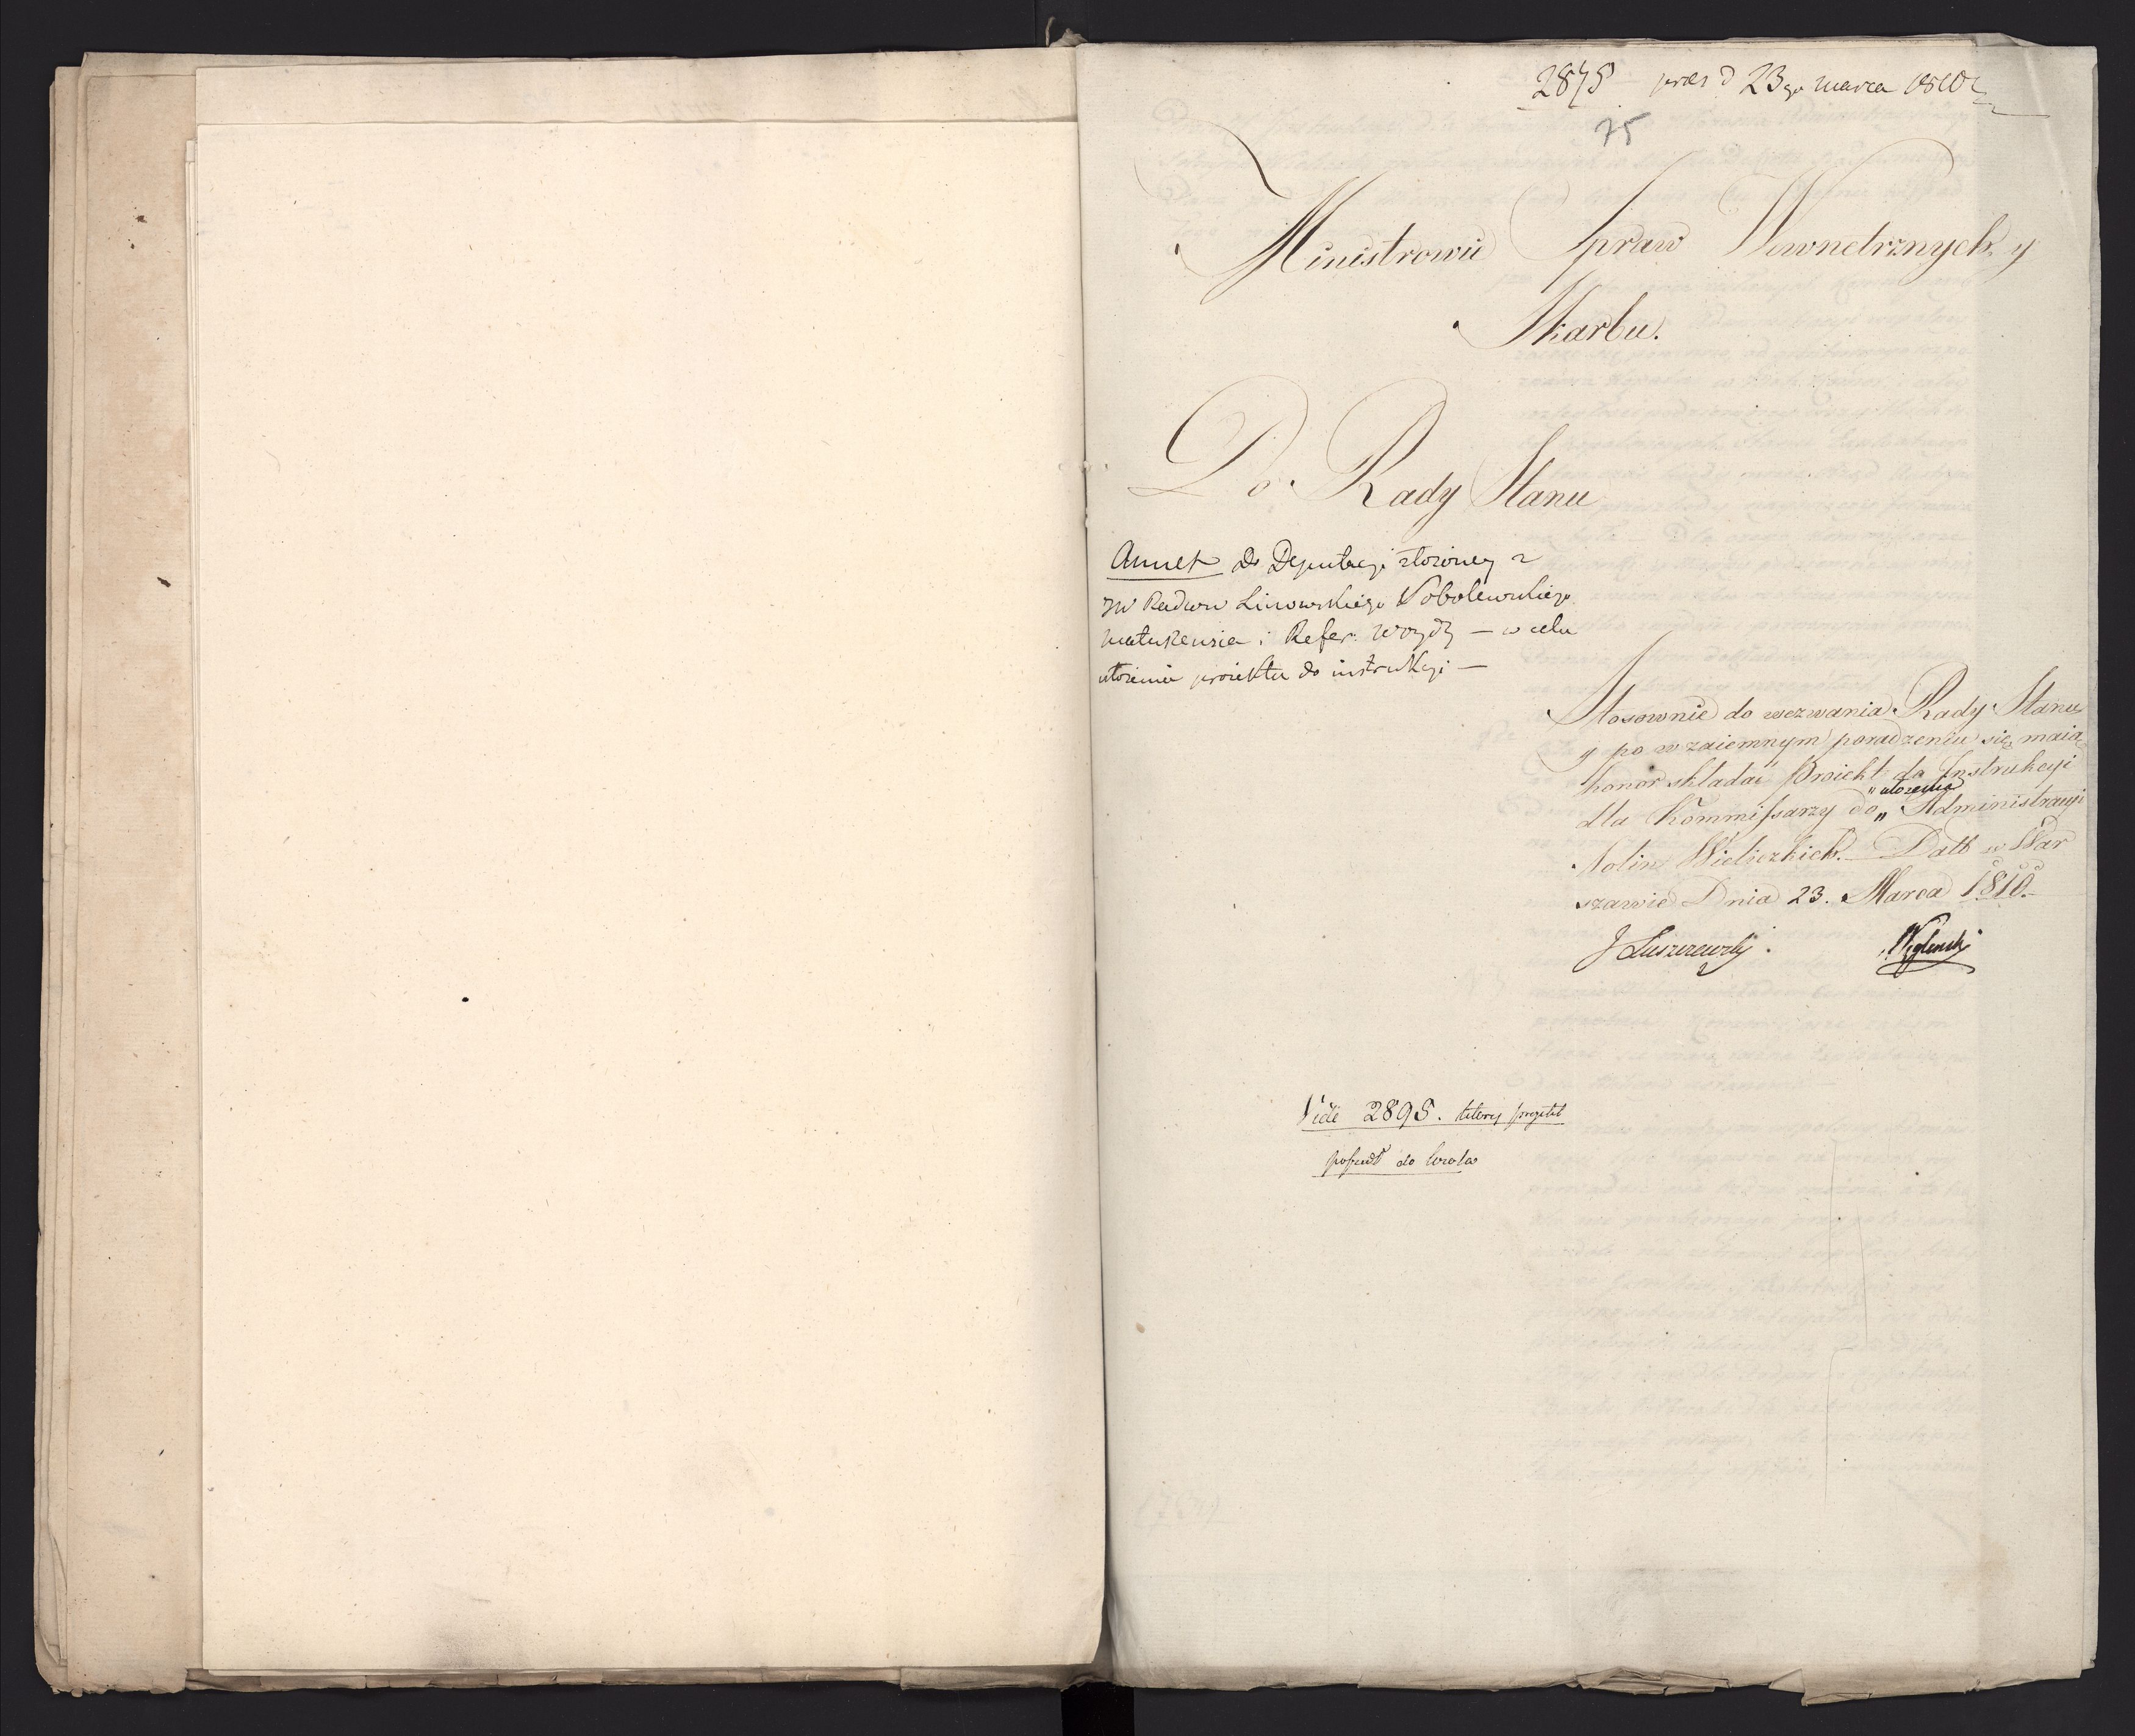 2875 praes d 23go marca 1810
75
Ministrowie Spraw Wewnetrznych y
Skarbu.
Do Rady Stanu
Annex do Deputacyi złożoney z
JW Radzcw Linowskiego Sobolewskiego
Matuszewica i Refer. Woyd – w celu
ułożenia proiektu do instrukcyi –
Stosownie do wezwania Rady Stanu
y po wzaiemnym poradzeniu się maią
honor składać Proiekt do Instrukcyi
dla Kommissarzy do „ Administracyi
„ ułożenia
Solin Wielickich. Datt w War
szawie Dnia 23. Marca 1810.
J Łuszczewski. Węgleński
Vide 2895. który proiekt
poszedł do Króla